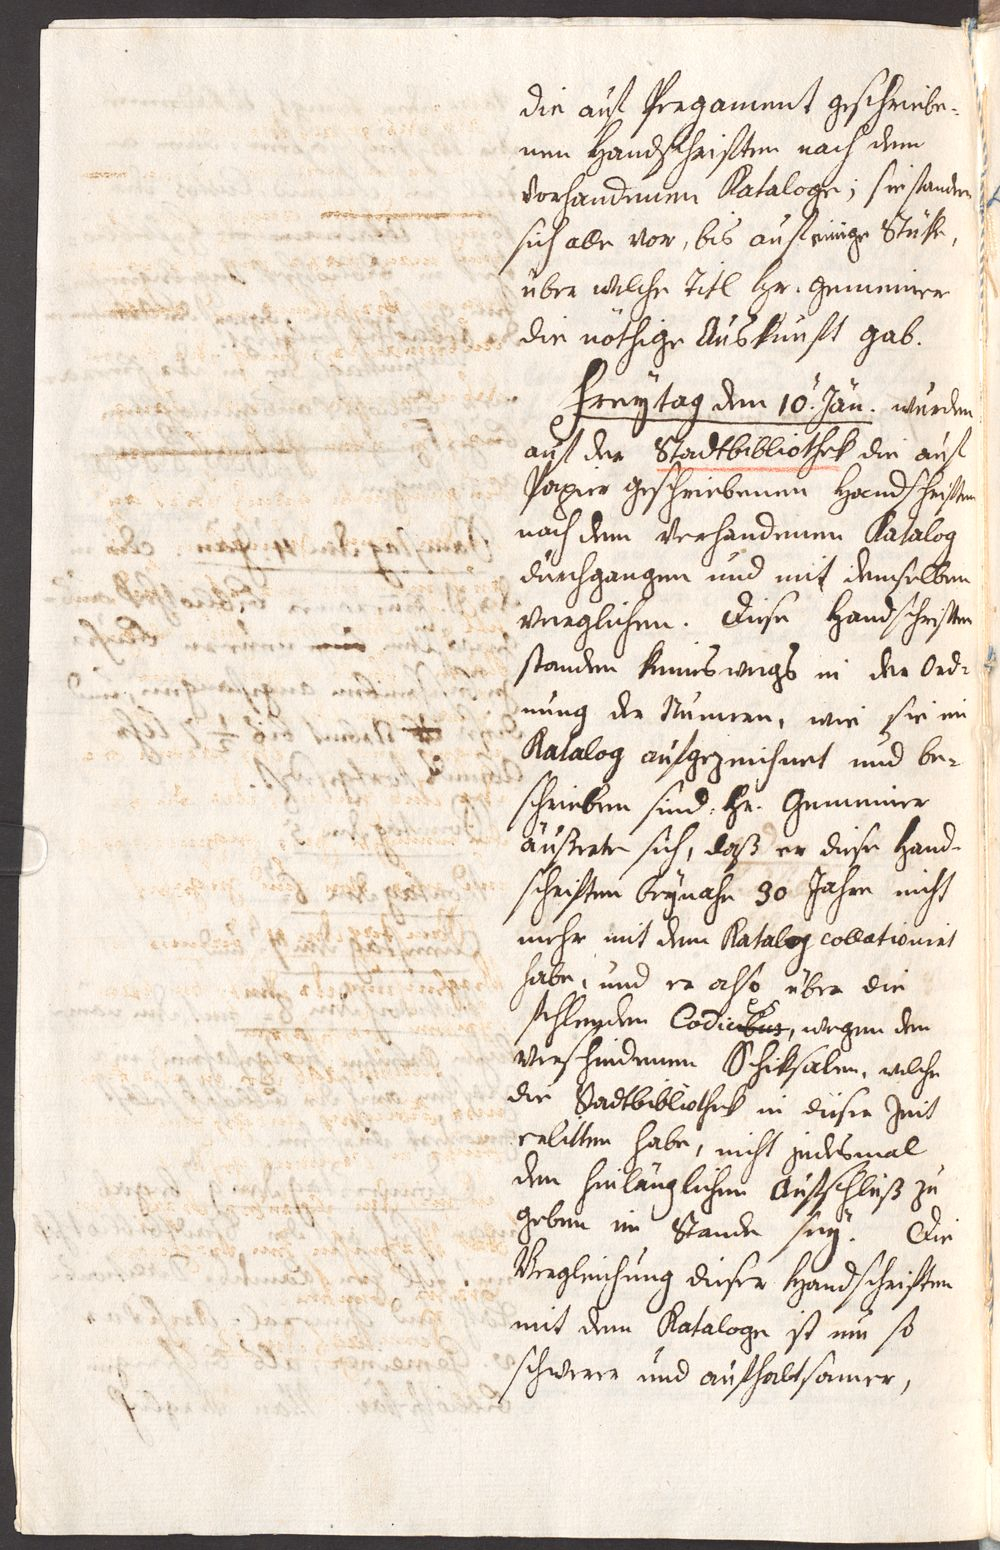 die auf Pergament geschriebe-
nen Handschriften nach dem
vorhandenen Kataloge; sie standen
sich alle vor, bis auf einige Stüke,
über welche Titl Hr. Gemeiner
die nöthige Auskunft gab.
Freytag den 10. Jän. wurden
auf der Stadtbibliothek die auf
Papier geschriebenen Handschriften
nach dem vorhandenen Katalog
durchgangen und mit demselben
verglichen. Diese Handschriften
standen keineswegs in der Ord-
nung der Numern, wie sie im
Katalog aufgezeichnet und be-
schrieben sind. Hr. Gemeiner
äußerte sich, daß er diese Hand-
schriften beynahe 30 Jahre nicht
mehr mit dem Katalog collationirt
habe, und er also über die
fehlenden Codices, wegen den
verschiedenen Schiksalen, welche
die Stadtbibliothek in dieser Zeit
erlitten habe, nicht jedesmal
den hinlänglichen Aufschluß zu
geben im Stande sey. Die
Vergleichung dieser Handschriften
mit dem Kataloge ist um so
schwerer und aufhaltsamer,